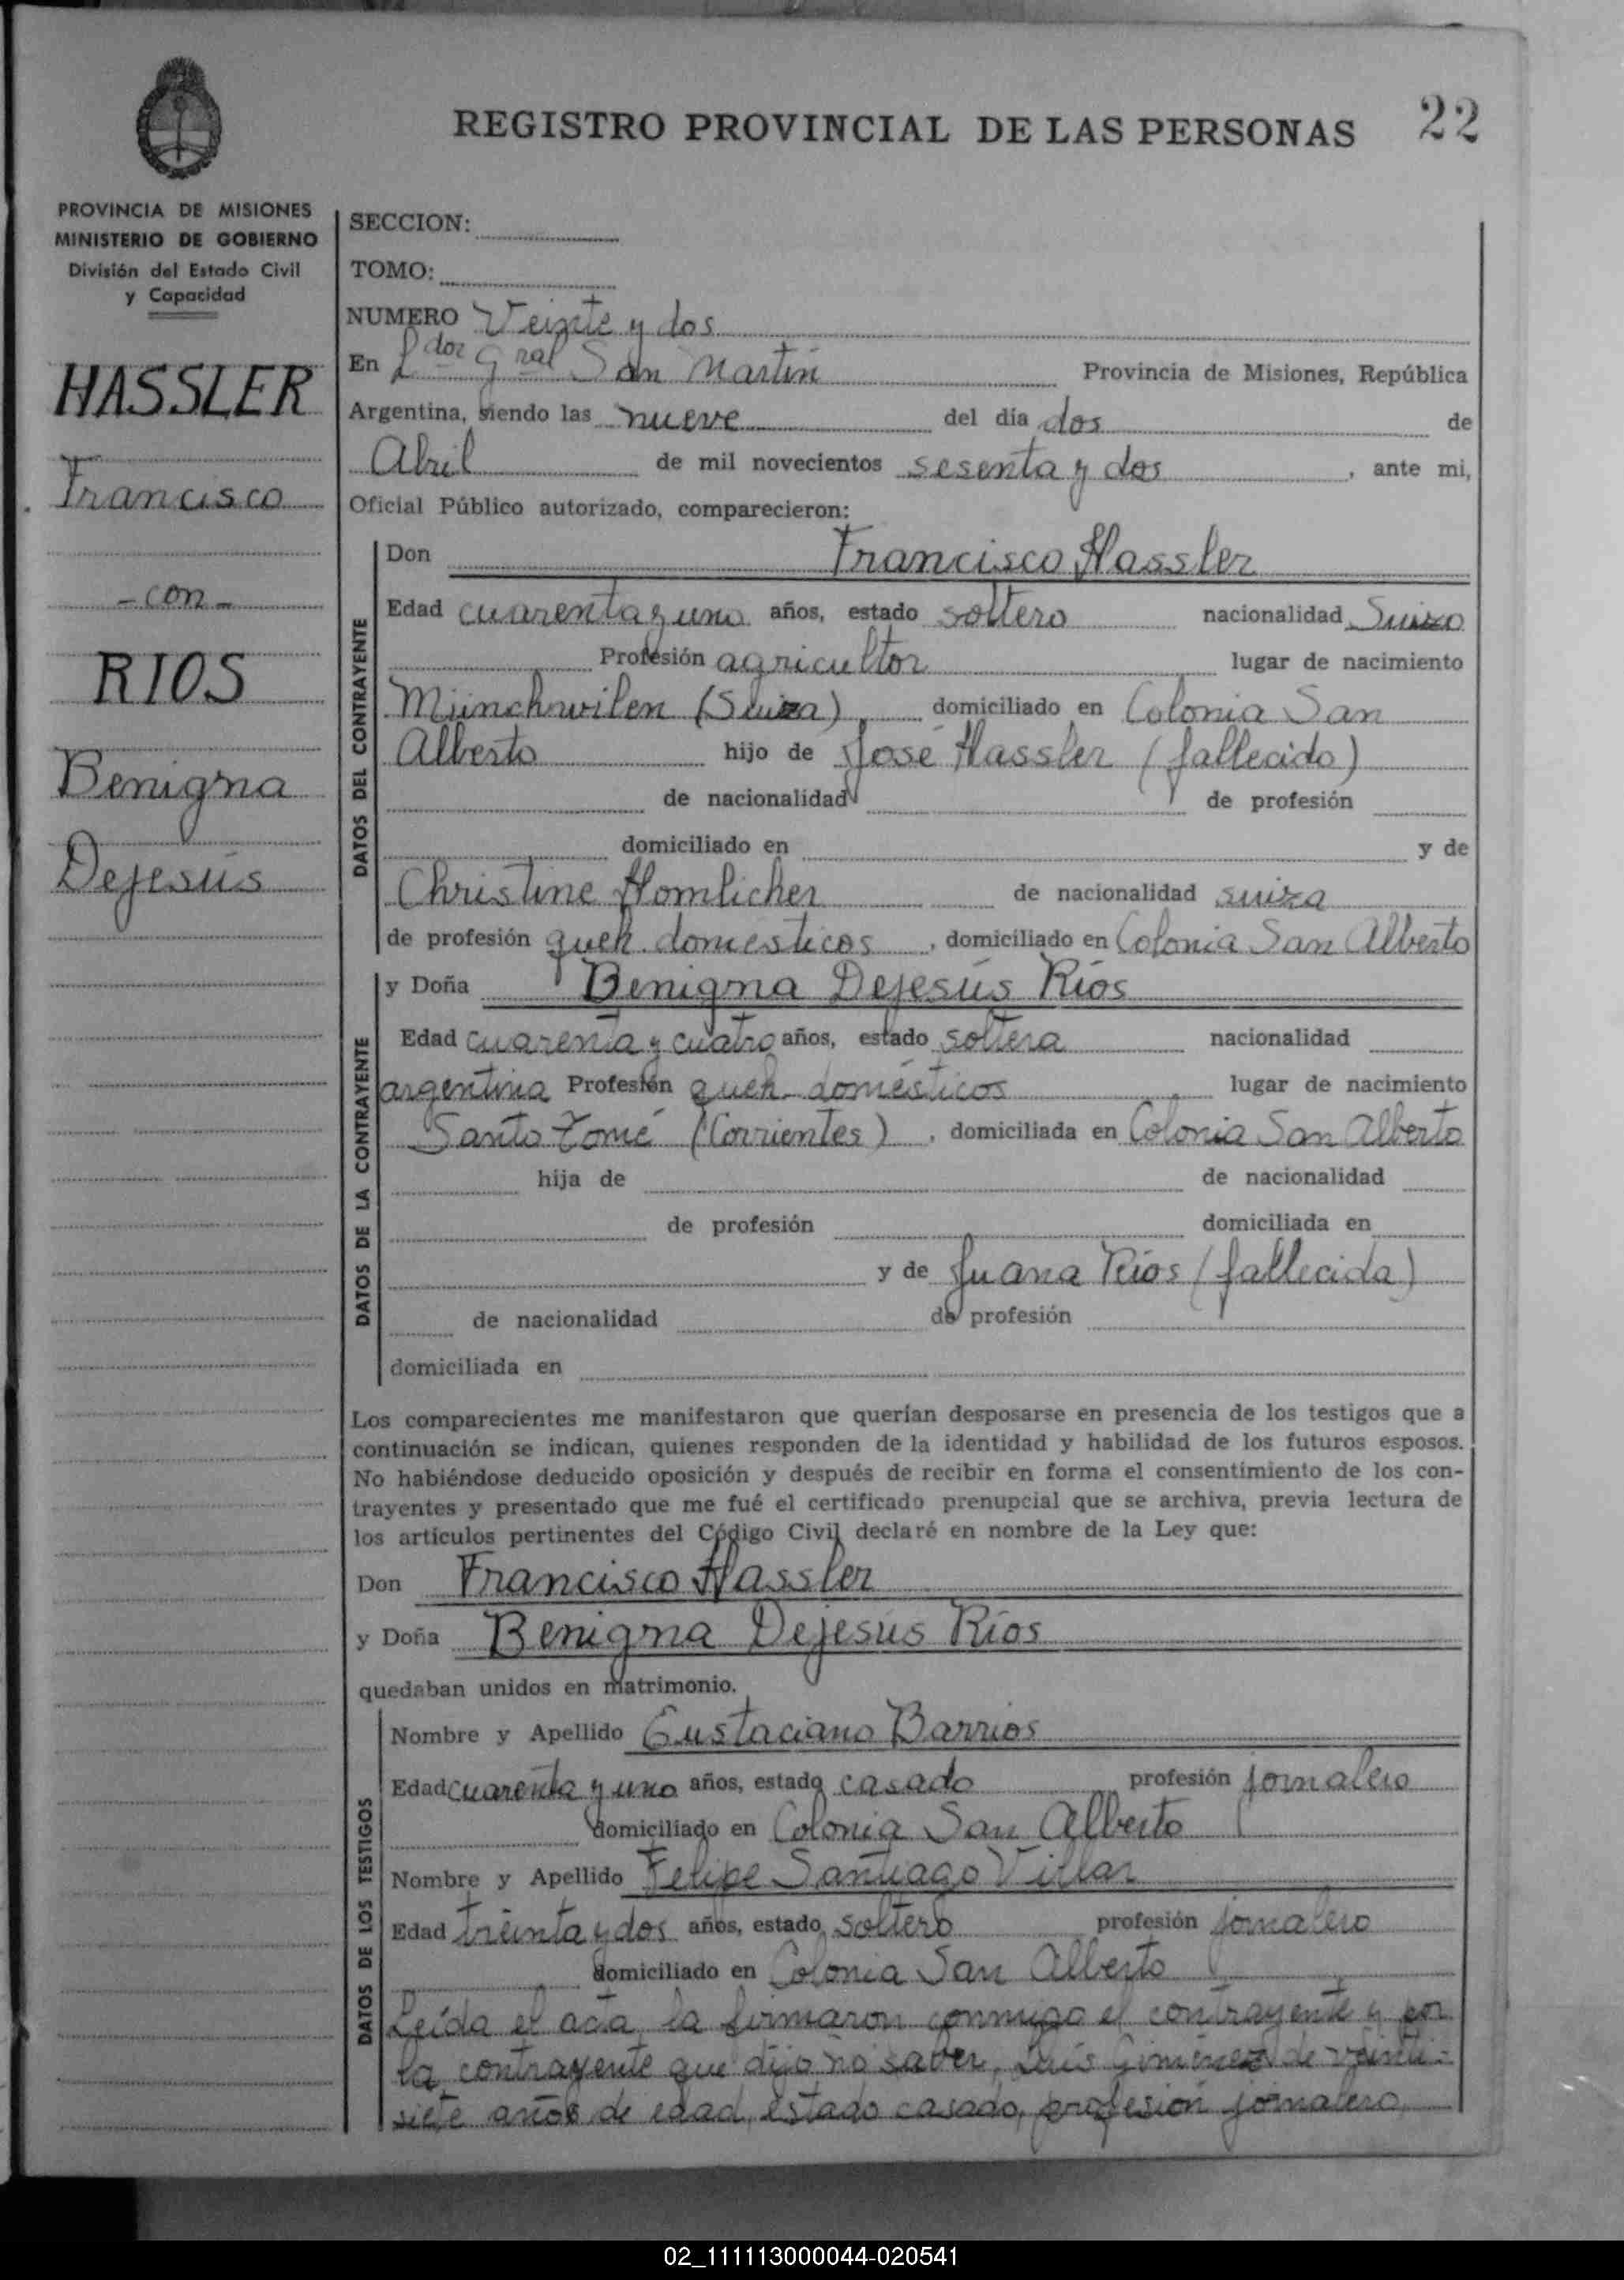 REGISTRO PROVINCIAL DE LAS PERSONAS 22
PROVINCIA DE MISIONES
MINISTERIO DE GOBIERNO
División del Estado Civil
y Capacidad
HASSLER
Francisco
- con -
RIOS
Benigna
Dejesús
SECCION:
TOMO:
NUMERO Veinte y dos
En Ldor Gral San Martin Provincia de Misiones, República
Argentina, siendo las nueve del día dos de
Abril de mil novecientos sesenta y dos, ante mi,
Oficial Público autorizado, comparecieron:
DATOS DEL CONTRAYENTE
Don Francisco Hassler
Edad cuarenta y uno años, estado soltero nacionalidad Suizo
Profesión agricultor lugar de nacimiento
Münchwilen (Suiza), domiciliado en Colonia San
Alberto hijo de José Hassler (fallecido)
de nacionalidad de profesión
domiciliado en y de
Christine Homlicher de nacionalidad suiza
de profesión queh. domésticos, domiciliado en Colonia San Alberto
DATOS DE LA CONTRAYENTE
y Doña Benigna Dejesús Ríos
Edad cuarenta y cuatro años, estado soltera nacionalidad
argentina Profesión queh. domésticos lugar de nacimiento
Santo Tomé (Corrientes), domiciliada en Colonia San Alberto
hija de de nacionalidad
de profesión domiciliada en
y de Juana Ríos (fallecida)
de nacionalidad de profesión
domiciliada en
Los comparecientes me manifestaron que querían desposarse en presencia de los testigos que a
continuación se indican, quienes responden de la identidad y habilidad de los futuros esposos.
No habiéndose deducido oposición y después de recibir en forma el consentimiento de los con-
trayentes y presentado que me fué el certificado prenupcial que se archiva, previa lectura de
los artículos pertinentes del Código Civil declaré en nombre de la Ley que:
Don Francisco Hassler
y Doña Benigna Dejesús Ríos
quedaban unidos en matrimonio.
DATOS DE LOS TESTIGOS
Nombre y Apellido Eustaciano Barrios
Edad cuarenta y uno años, estado casado profesión jornalero
domiciliado en Colonia San Alberto
Nombre y Apellido Felipe Santiago Villar
Edad treinta y dos años, estado soltero profesión jornalero
domiciliado en Colonia San Alberto
Leída el acta, la firmaron conmigo el contrayente y por
la contrayente que dijo no saber, Luis Giménez de veinti-
siete años de edad, estado casado, profesión jornalero,
02_111113000044-020541